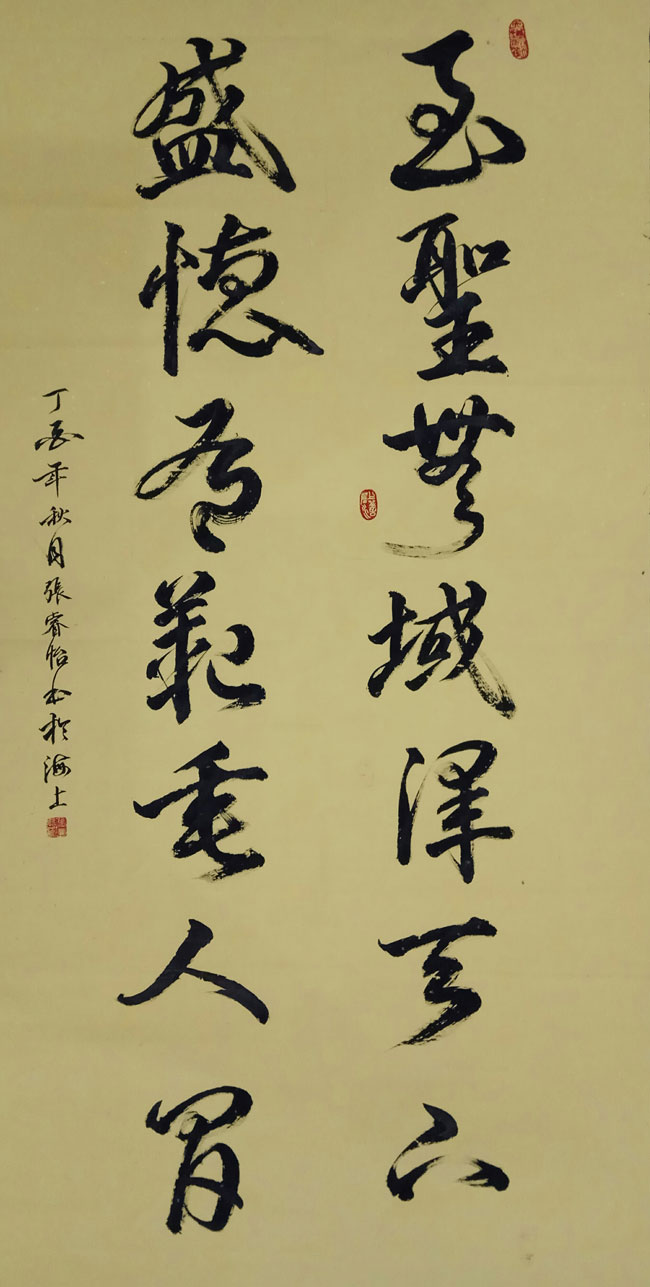 至聖無域澤天下
盛德有範垂人間
丁酉年秋月張睿怡書於海上